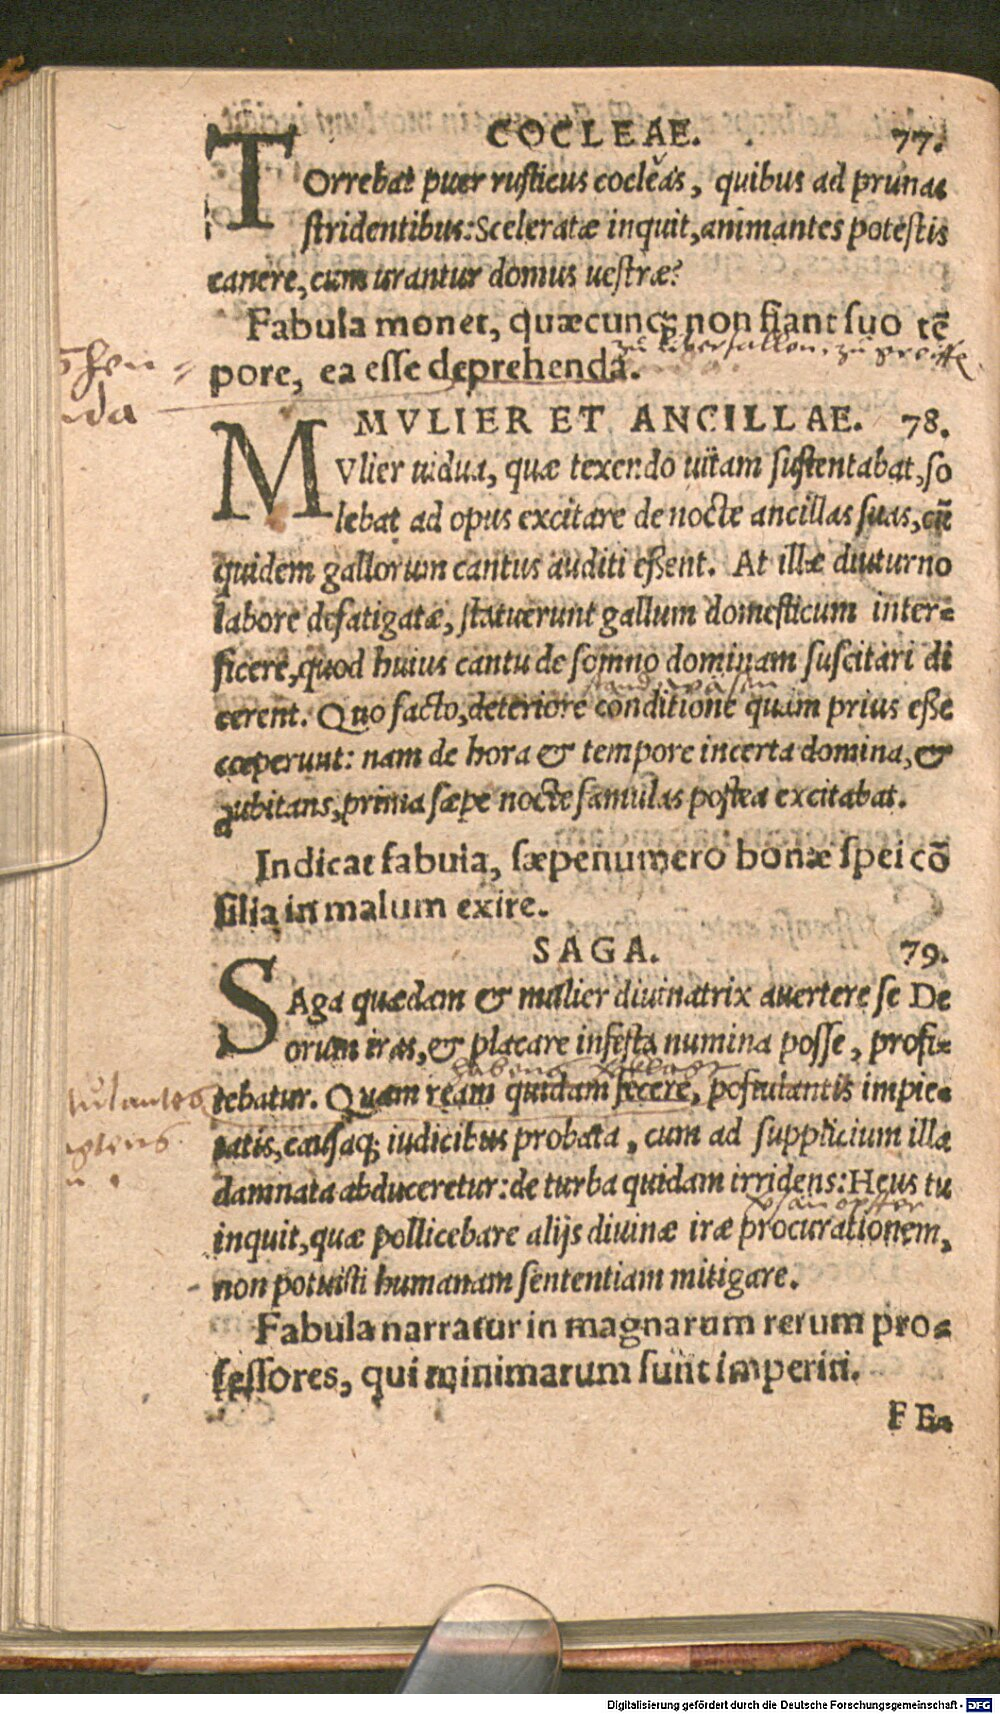 COCLEAE. 77.
TOrrebat puer rusticus cocleas, quibus ad prunas
stridentibus: Sceleratæ inquit, animantes potestis
canere, cum urantur domus uestræ?
Fabula monet, quæcunqꝫ non fiant suo tē
pore, ea esse deprehenda.
MVLIER ET ANCILLAE. 78.
MVlier uidua, quæ texendo uitam sustentabat, so
lebat ad opus excitare de nocte ancillas suas, cū
quidem gallorum cantus auditi essent. At illæ diuturno
labore defatigatæ, statuerunt gallum domesticum inter-
ficere, quod huius cantu de somno dominam suscitari di
cerent. Quo facto, deteriore conditione quàm prius esse
cœperunt: nam de hora & tempore incerta domina, &
dubitans, prima sæpe nocte famulas postea excitabat.
Indicat fabula, sæpenumero bonæ spei cō
silia in malum exire.
SAGA. 79.
SAga quædam & mulier diuinatrix auertere se De
orum iras, & placare infesta numina posse, profi-
tebatur. Quam ream quidam fecere, postulantis impie-
tatis, causaqꝫ iudicibus probata, cum ad supplicium illa
damnata abduceretur: de turba quidam irridens: Heus tu
inquit, quæ pollicebare alijs diuinæ iræ procurationem,
non potuisti humanam sententiam mitigare.
Fabula narratur in magnarum rerum pro-
fessores, qui minimarum sunt imperiti.
FE-
Digitalisierung gefördert durch die Deutsche Forschungsgemeinschaft - DFG